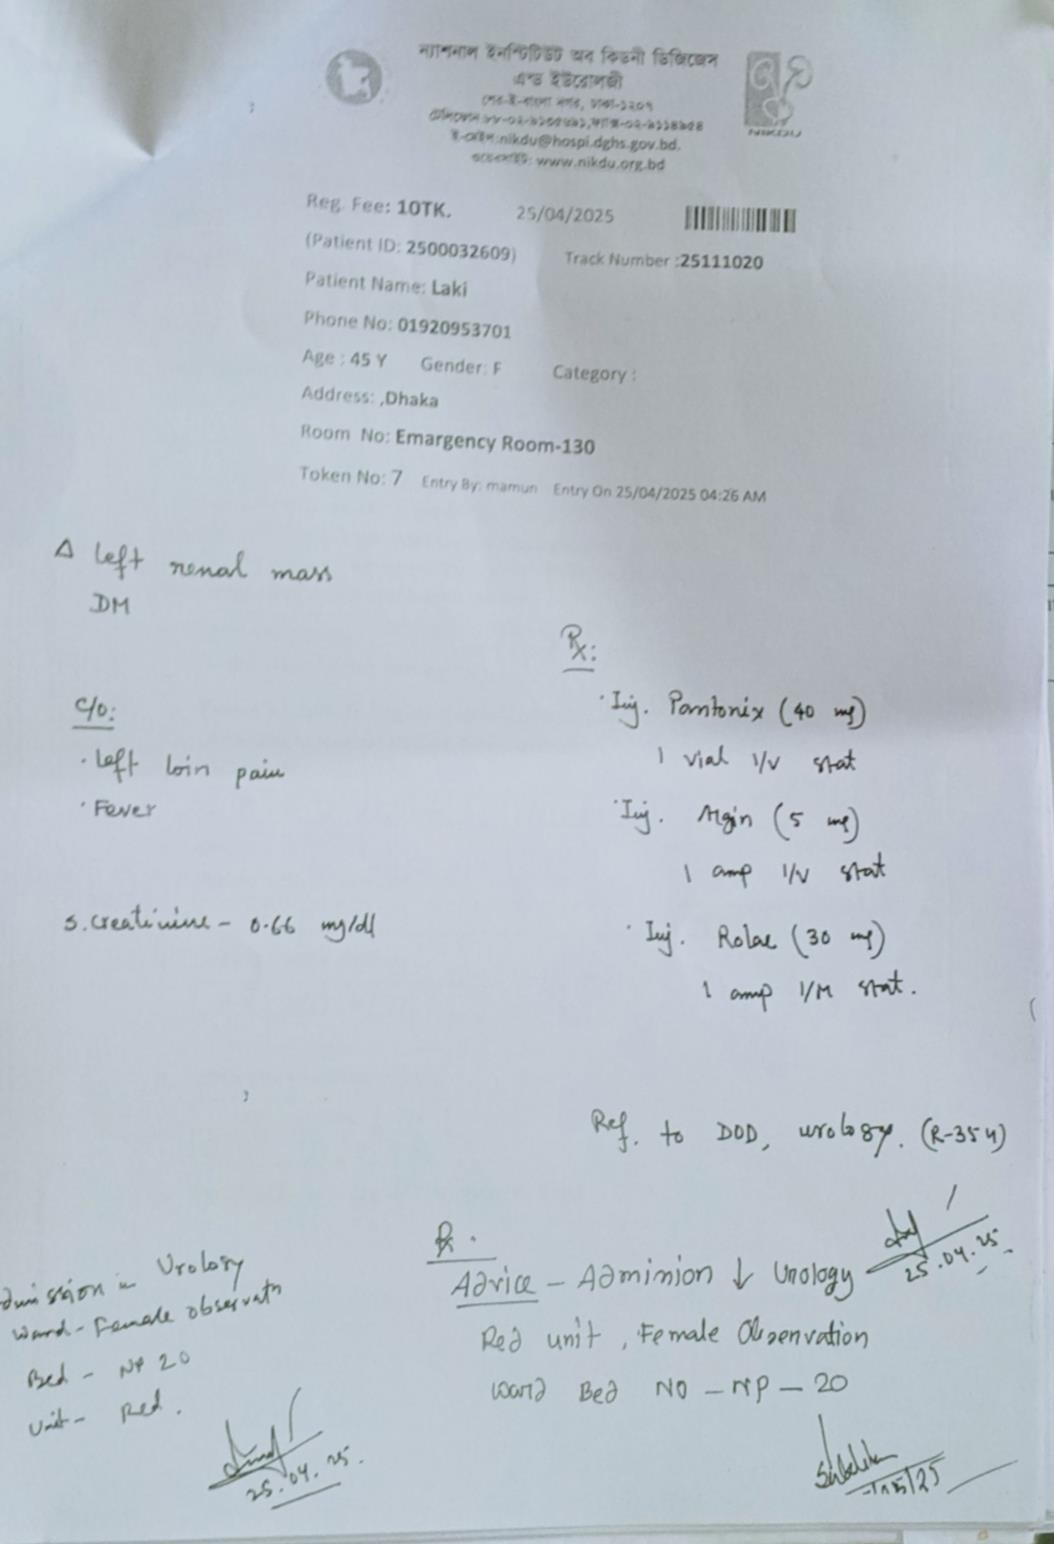 ন্যাশনাল ইনস্টিটিউট অব কিডনী ডিজিজেস
এন্ড ইউরোলজী
শের-ই-বাংলা নগর, ঢাকা-১২০৭
ই-মেইল:nikdu@hospi.dghs.gov.bd.
ওয়েবসাইট: www.nikdu.org.bd
NIKDU
Reg. Fee: 10TK. 25/04/2025
(Patient ID: 2500032609) Track Number :25111020
Patient Name: Laki
Phone No: 01920953701
Age : 45 Y Gender: F Category :
Address: ,Dhaka
Room No: Emargency Room-130
Token No: 7 Entry By: mamun Entry On 25/04/2025 04:26 AM
Δ left renal mass
DM
Rx:
C/O:
· Left loin pain
· Fever
S. Creatinine - 0.66 mg/dl
· Inj. Pantonix (40 mg)
1 vial I/V stat
· Inj. Algin (5 mg)
1 amp I/V stat
· Inj. Rolac (30 mg)
1 amp I/M stat.
Ref. to DOD, urology. (R-354)
25.04.25
Rx.
Advice - Adminion ↓ Urology
Red unit, Female Observation
Ward Bed NO - NP - 20
dmission in Urology
Ward - Female observatn
Bed - NP 20
Unit - Red.
25.04.25.